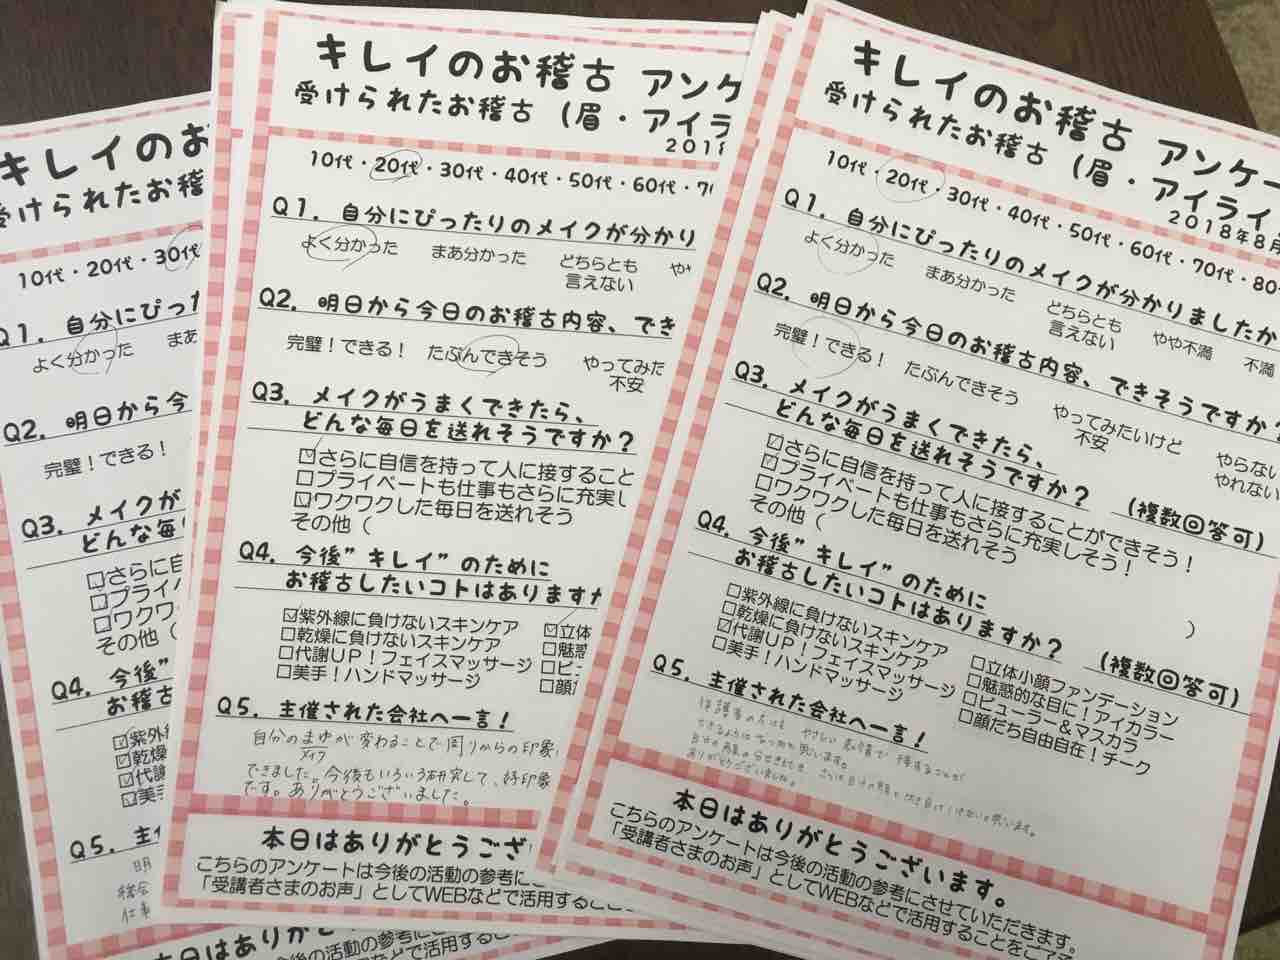 キレイのお
受けられたお稽
10代・20代・30代
Q1. 自分にぴっ
よく分かった まあ
Q2. 明日から今
完璧！できる！
Q3. メイクが
どんな毎
□さらに自
□プライ
□ワクワク
その他（
Q4. 今後”
お稽古
☑紫外
☑乾燥
☑代謝
☑美手
Q5. 主
明
仕事
本日はありがと
キレイのお稽古 アンケ
受けられたお稽古（眉・アイラ
2018
10代・20代・30代・40代・50代・60代・7
Q1. 自分にぴったりのメイクが分かり
よく分かった まあ分かった どちらとも
言えない
Q2. 明日から今日のお稽古内容、でき
完璧！できる！ たぶんできそう やってみた
不安
Q3. メイクがうまくできたら、
どんな毎日を送れそうですか？
☑さらに自信を持って人に接すること
□プライベートも仕事もさらに充実し
☑ワクワクした毎日を送れそう
その他（
Q4. 今後”キレイ”のために
お稽古したいコトはありますか
☑紫外線に負けないスキンケア ☑立体
□乾燥に負けないスキンケア □魅惑
□代謝ＵＰ！フェイスマッサージ □ビュ
□美手！ハンドマッサージ □顔だ
Q5. 主催された会社へ一言！
自分のまゆが変わることで周りからの印象
メイク
できました。今後もいろいろ研究して、好印象
です。ありがとうございました。
本日はありがとうござい
こちらのアンケートは今後の活動の参考に
「受講者さまのお声」としてWEBなどで活用するこ
キレイのお稽古 アンケー
受けられたお稽古（眉・アイライ
2018年8月
10代・20代・30代・40代・50代・60代・70代・80
Q1. 自分にぴったりのメイクが分かりましたか
よく分かった まあ分かった どちらとも やや不満 不満
言えない
Q2. 明日から今日のお稽古内容、できそうですか？
完璧！できる！ たぶんできそう やってみたいけど やらない
不安 やれない
Q3. メイクがうまくできたら、
どんな毎日を送れそうですか？ （複数回答可）
☑さらに自信を持って人に接することができそう！
☑プライベートも仕事もさらに充実しそう！
□ワクワクした毎日を送れそう
その他（ ）
Q4. 今後”キレイ”のために
お稽古したいコトはありますか？ （複数回答可）
□紫外線に負けないスキンケア □立体小顔ファンデーション
□乾燥に負けないスキンケア □魅惑的な目に！アイカラー
☑代謝ＵＰ！フェイスマッサージ □ビューラー＆マスカラ
□美手！ハンドマッサージ □顔だち自由自在！チーク
Q5. 主催された会社へ一言！
ありがとうございました。
本日はありがとうございます。
こちらのアンケートは今後の活動の参考にさせていただきます。
「受講者さまのお声」としてWEBなどで活用することをご了